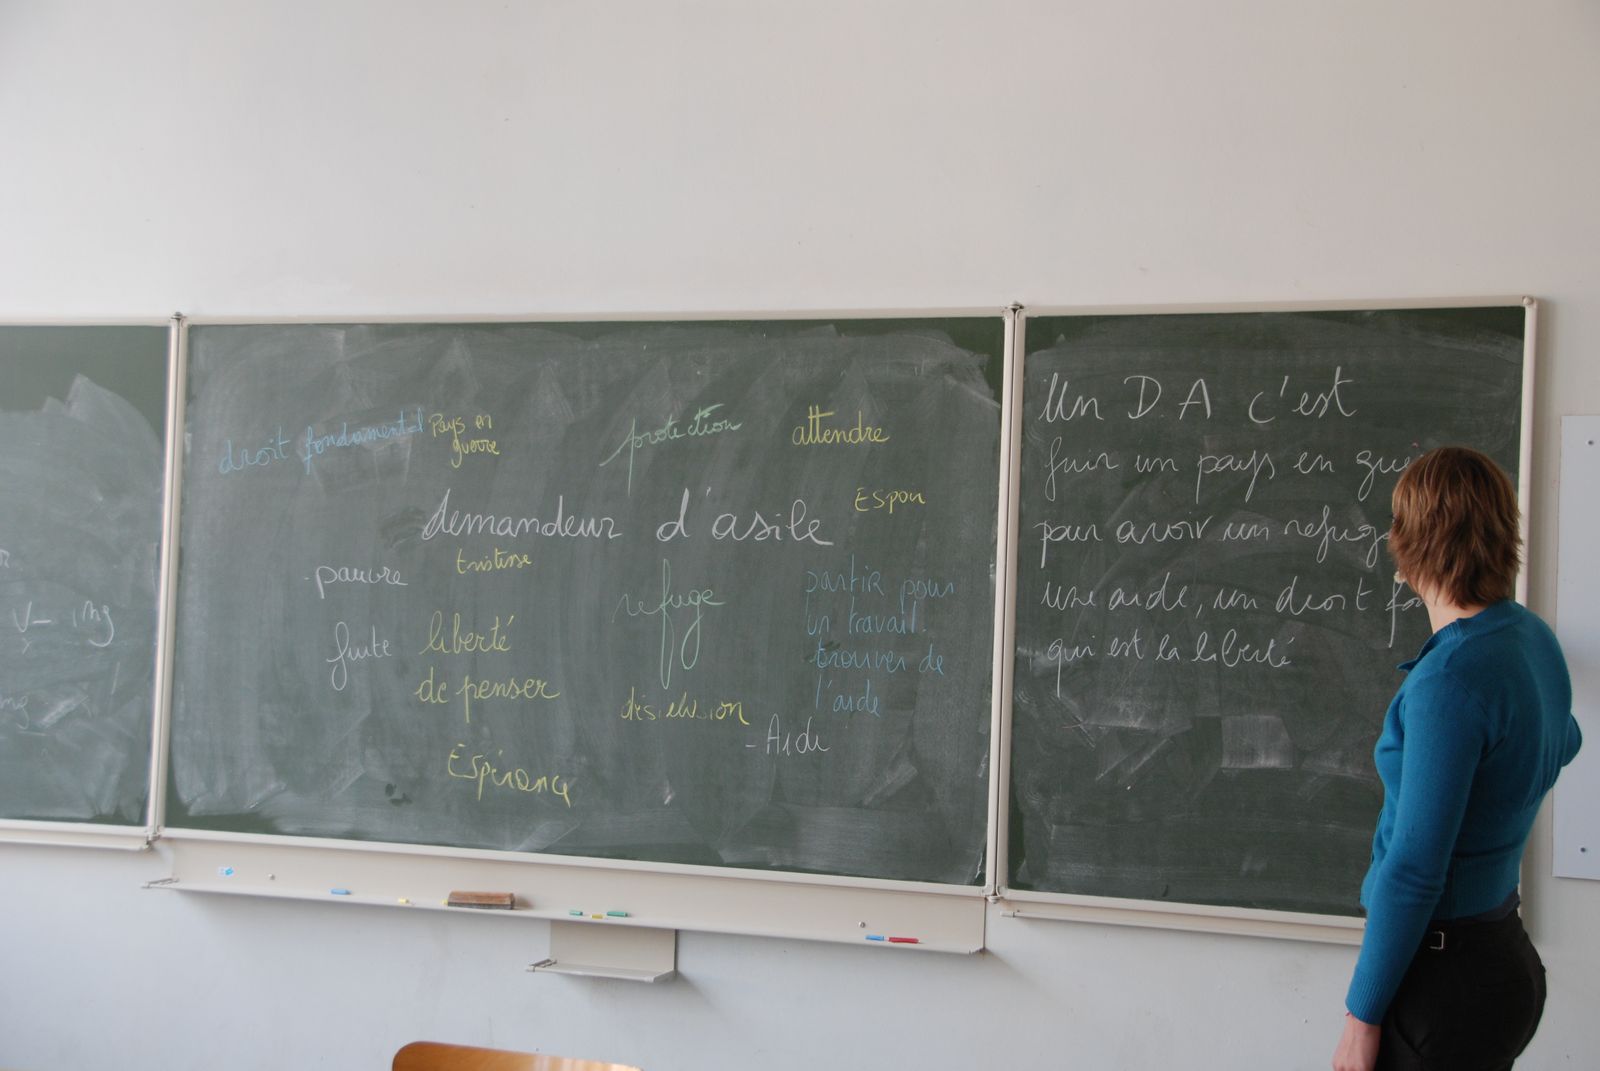 droit fondamental
Pays en
guerre
protection
attendre
Espoir
demandeur d'asile
tristesse
pauvre
fuite
liberté
de penser
refuge
partir pour
un travail.
trouver de
l'aide
désielusion
- Aide
Espérance
Un D.A c'est
fuir un pays en
pour avoir un
une aide, un droit
qui est la liberté